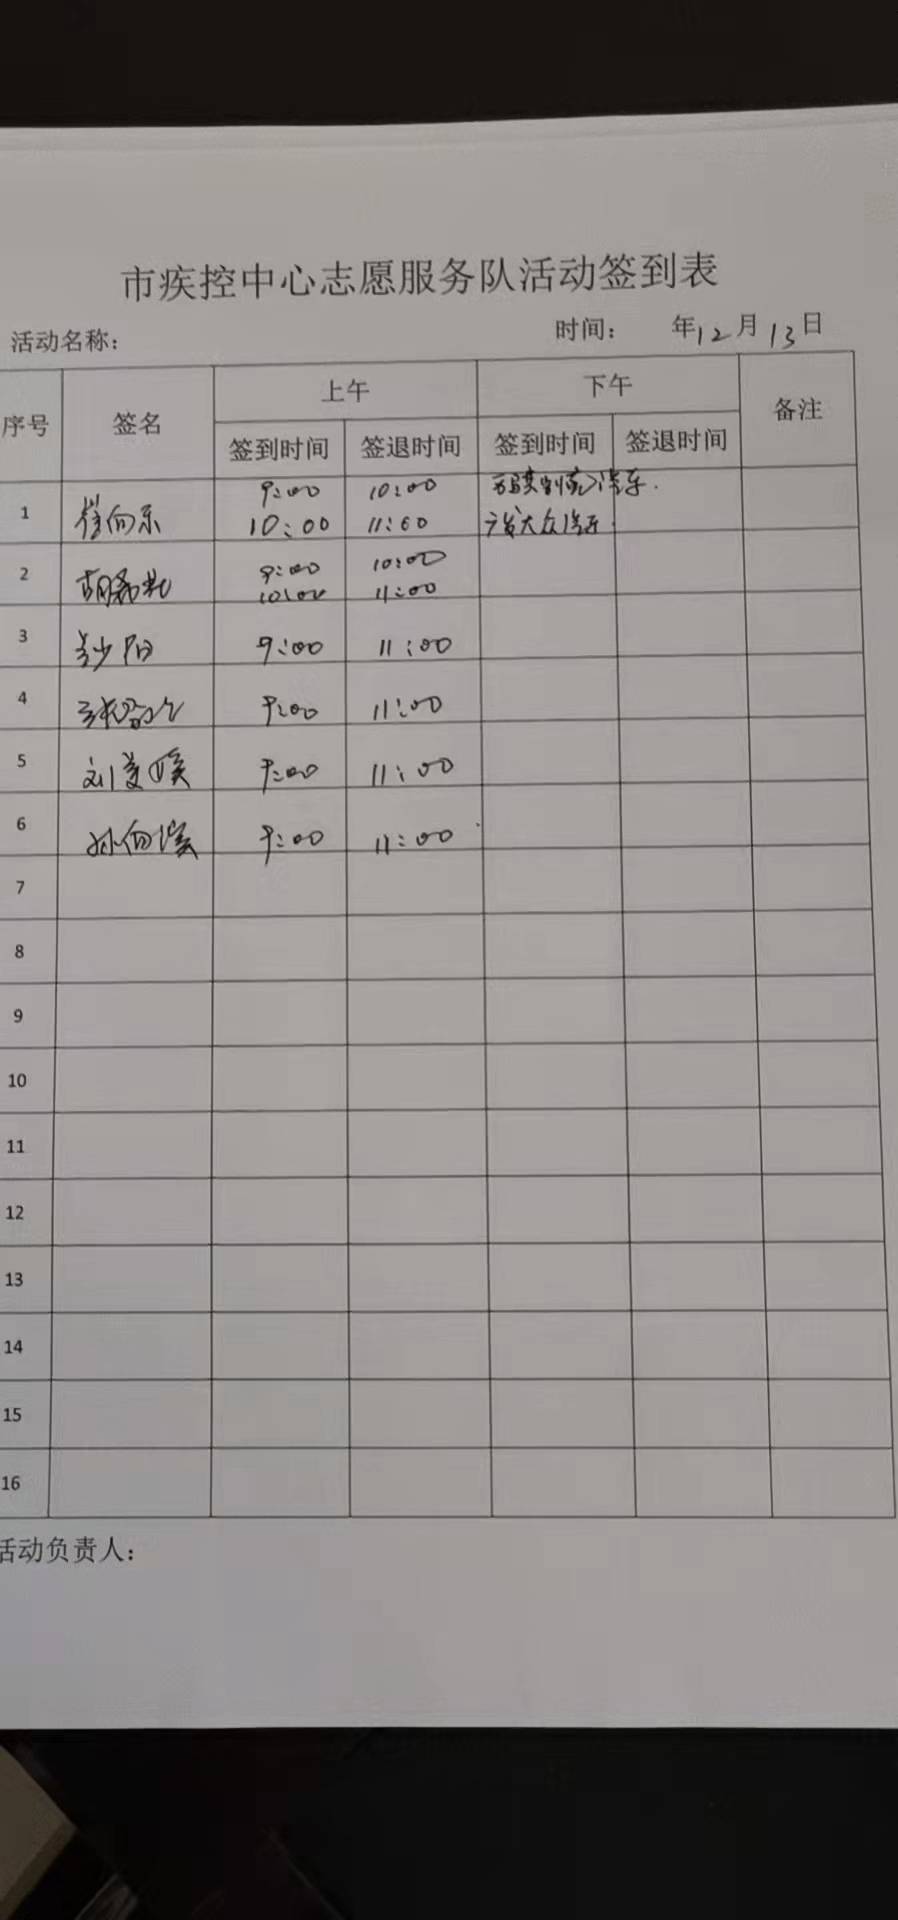 市疾控中心志愿服务队活动签到表
活动名称： 时间： 年12月13日
序号 签名 上午 下午 备注
签到时间 签退时间 签到时间 签退时间
1 9:00 10:00
向东 10:00 11:00 大众汽车
2 9:00 10:00
胡 10:00 11:00
3 阳 9:00 11:00
4 9:00 11:00
5 刘 9:00 11:00
6 孙向 9:00 11:00
7
8
9
10
11
12
13
14
15
16
活动负责人：